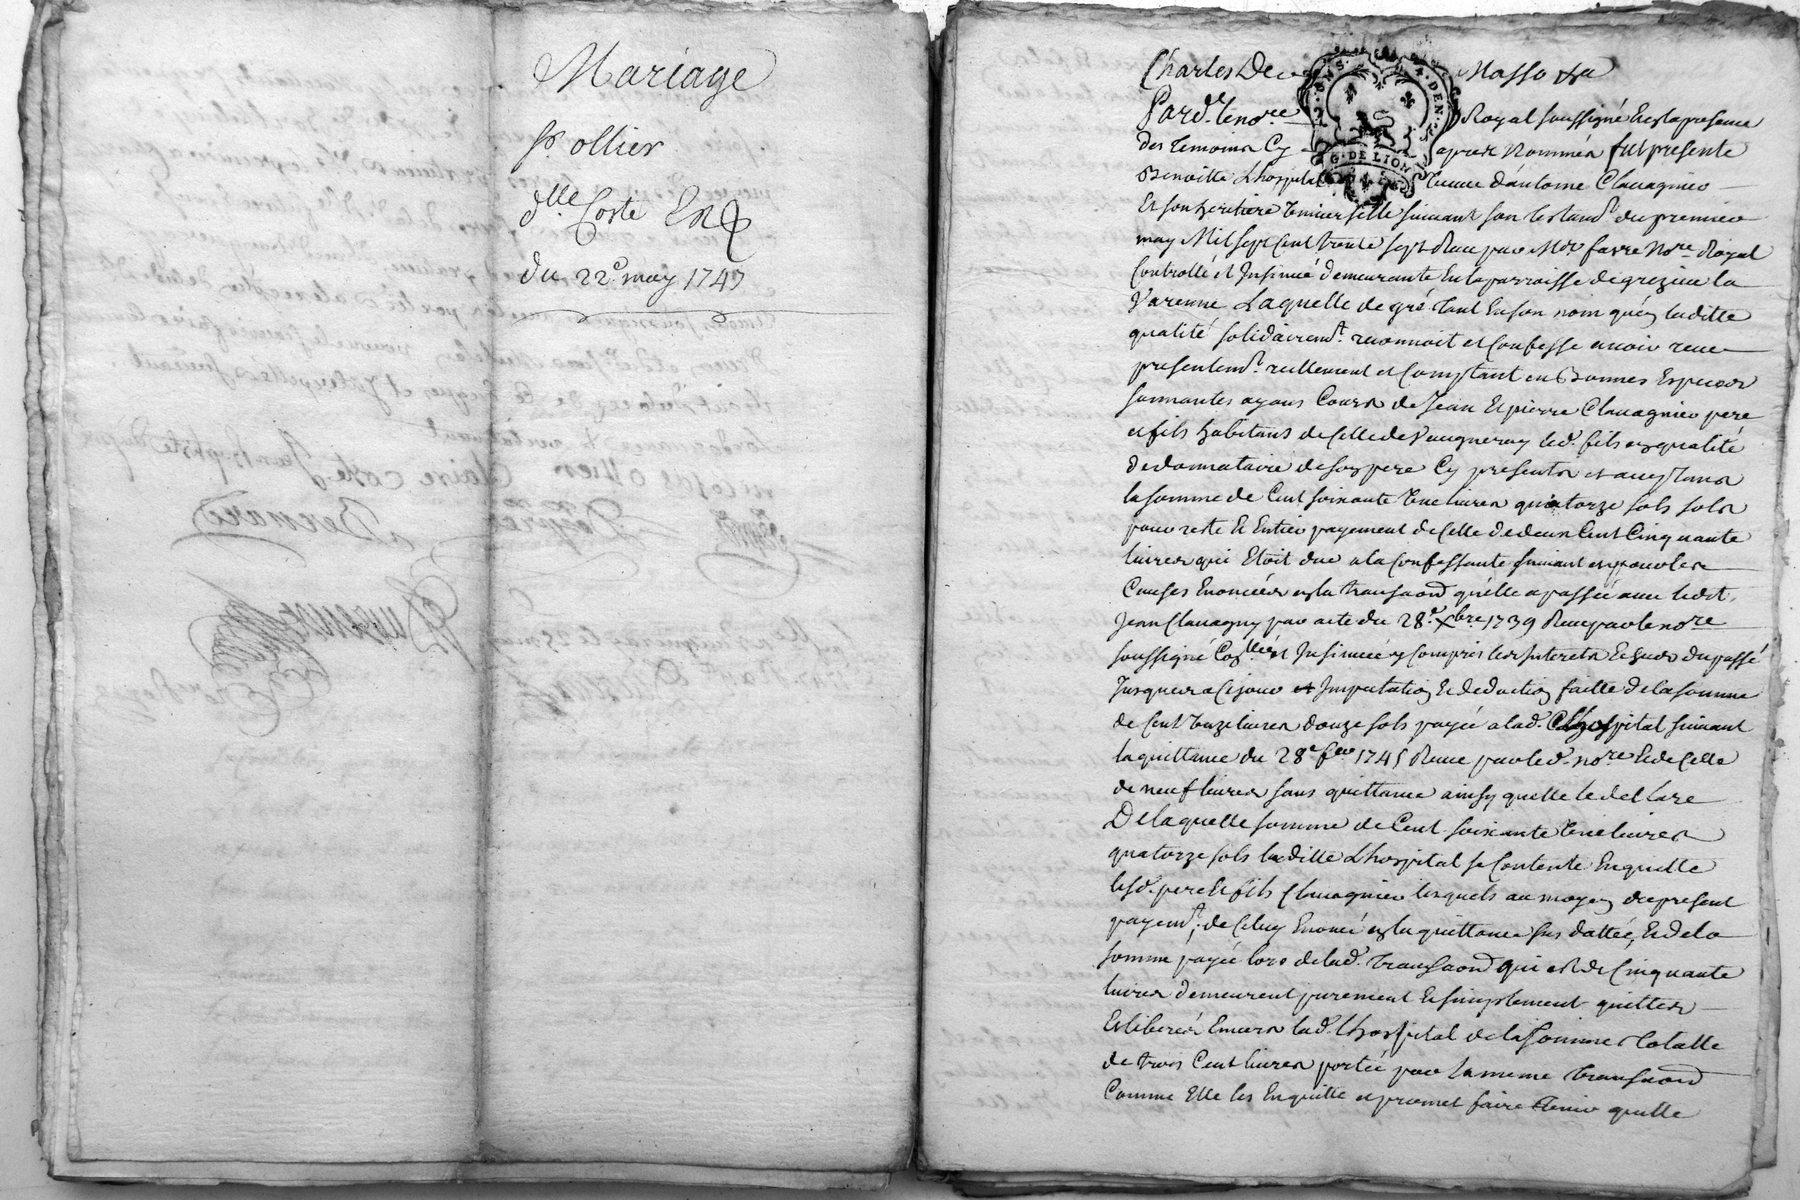 Mariage
Sr ollier
dlle Coste
du 22e may 1747
Charles De Masso &a
Pard. le nore Royal soussigné En la presence
des temoins Cy apres Nommés fut presente
Benoitte Lhospital veuve d'antoine Clavagnier
Et son heritiere universelle suivant son testamt. du premier
may Mil sept Cent trente sept Reçu par Mre favre Nore. Royal
Controllé et Insinué demeurante En la parroisse de grezieu la
Varenne Laquelle de gré tant En son nom qu'en laditte
qualité solidairemt. reconnoit et Confesse avoir receu
presentemt. reellement et Comptant en Bonnes Especes
sonnantes ayans Cours de Jean Et pierre Clavagnier pere
et fils habitans de Celle de Vaugneray led. fils en qualité
de donnataire de son pere Cy presents et acceptans
la somme de Cent soixante une livres quatorze sols sols
pour reste Et Entier payement de Celle de deux Cent Cinquante
livres qui Etoit due a la Confessante suivant et pour les
Causes Enoncées en la transaon qu'elle a passée avec ledt.
Jean Clavagny par acte du 28e. Xbre. 1739 Reçu par le nore
soussigné Conllée et Insinuée y Compris les Interets Echus du passé
Jusques a Ce jour et Imputation Et deduction faitte de la somme
de Cent onze livres douze sols payée a lad. Lhospital suivant
la quittance du 28e fer 1745 Reçue par led. nore Et de Celle
de neuf livres sans quittance ainsy qu'elle le declare
De laquelle somme de Cent soixante une livres
quatorze sols laditte Lhospital se Contente En quitte
lesd. pere Et fils Clavagnier lesquels au moyen du present
payemt. de Celuy Enoncé en la quittance sus dattée, Et de la
somme payée lors de lad. transaon qui est de Cinquante
livres demeurent purement Et simplement quittes
Et liberés Envers lad. Lhospital de la somme totalle
de trois Cent livres portée par la meme transaon
Comme Elle les En quitte et promet faire tenir quitte